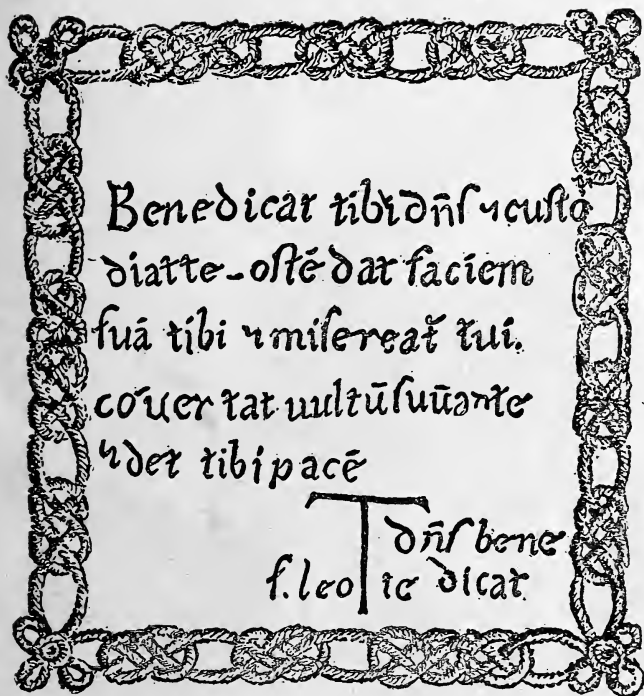 Benedicat tibi dn̄s ⁊ custo
diat te - ostē dat faciem
suā tibi ⁊ misereat̃ tui.
cōuer tat uultū suū ad te
⁊ det tibi pacē
T dn̄s bene
f. leo te dicat